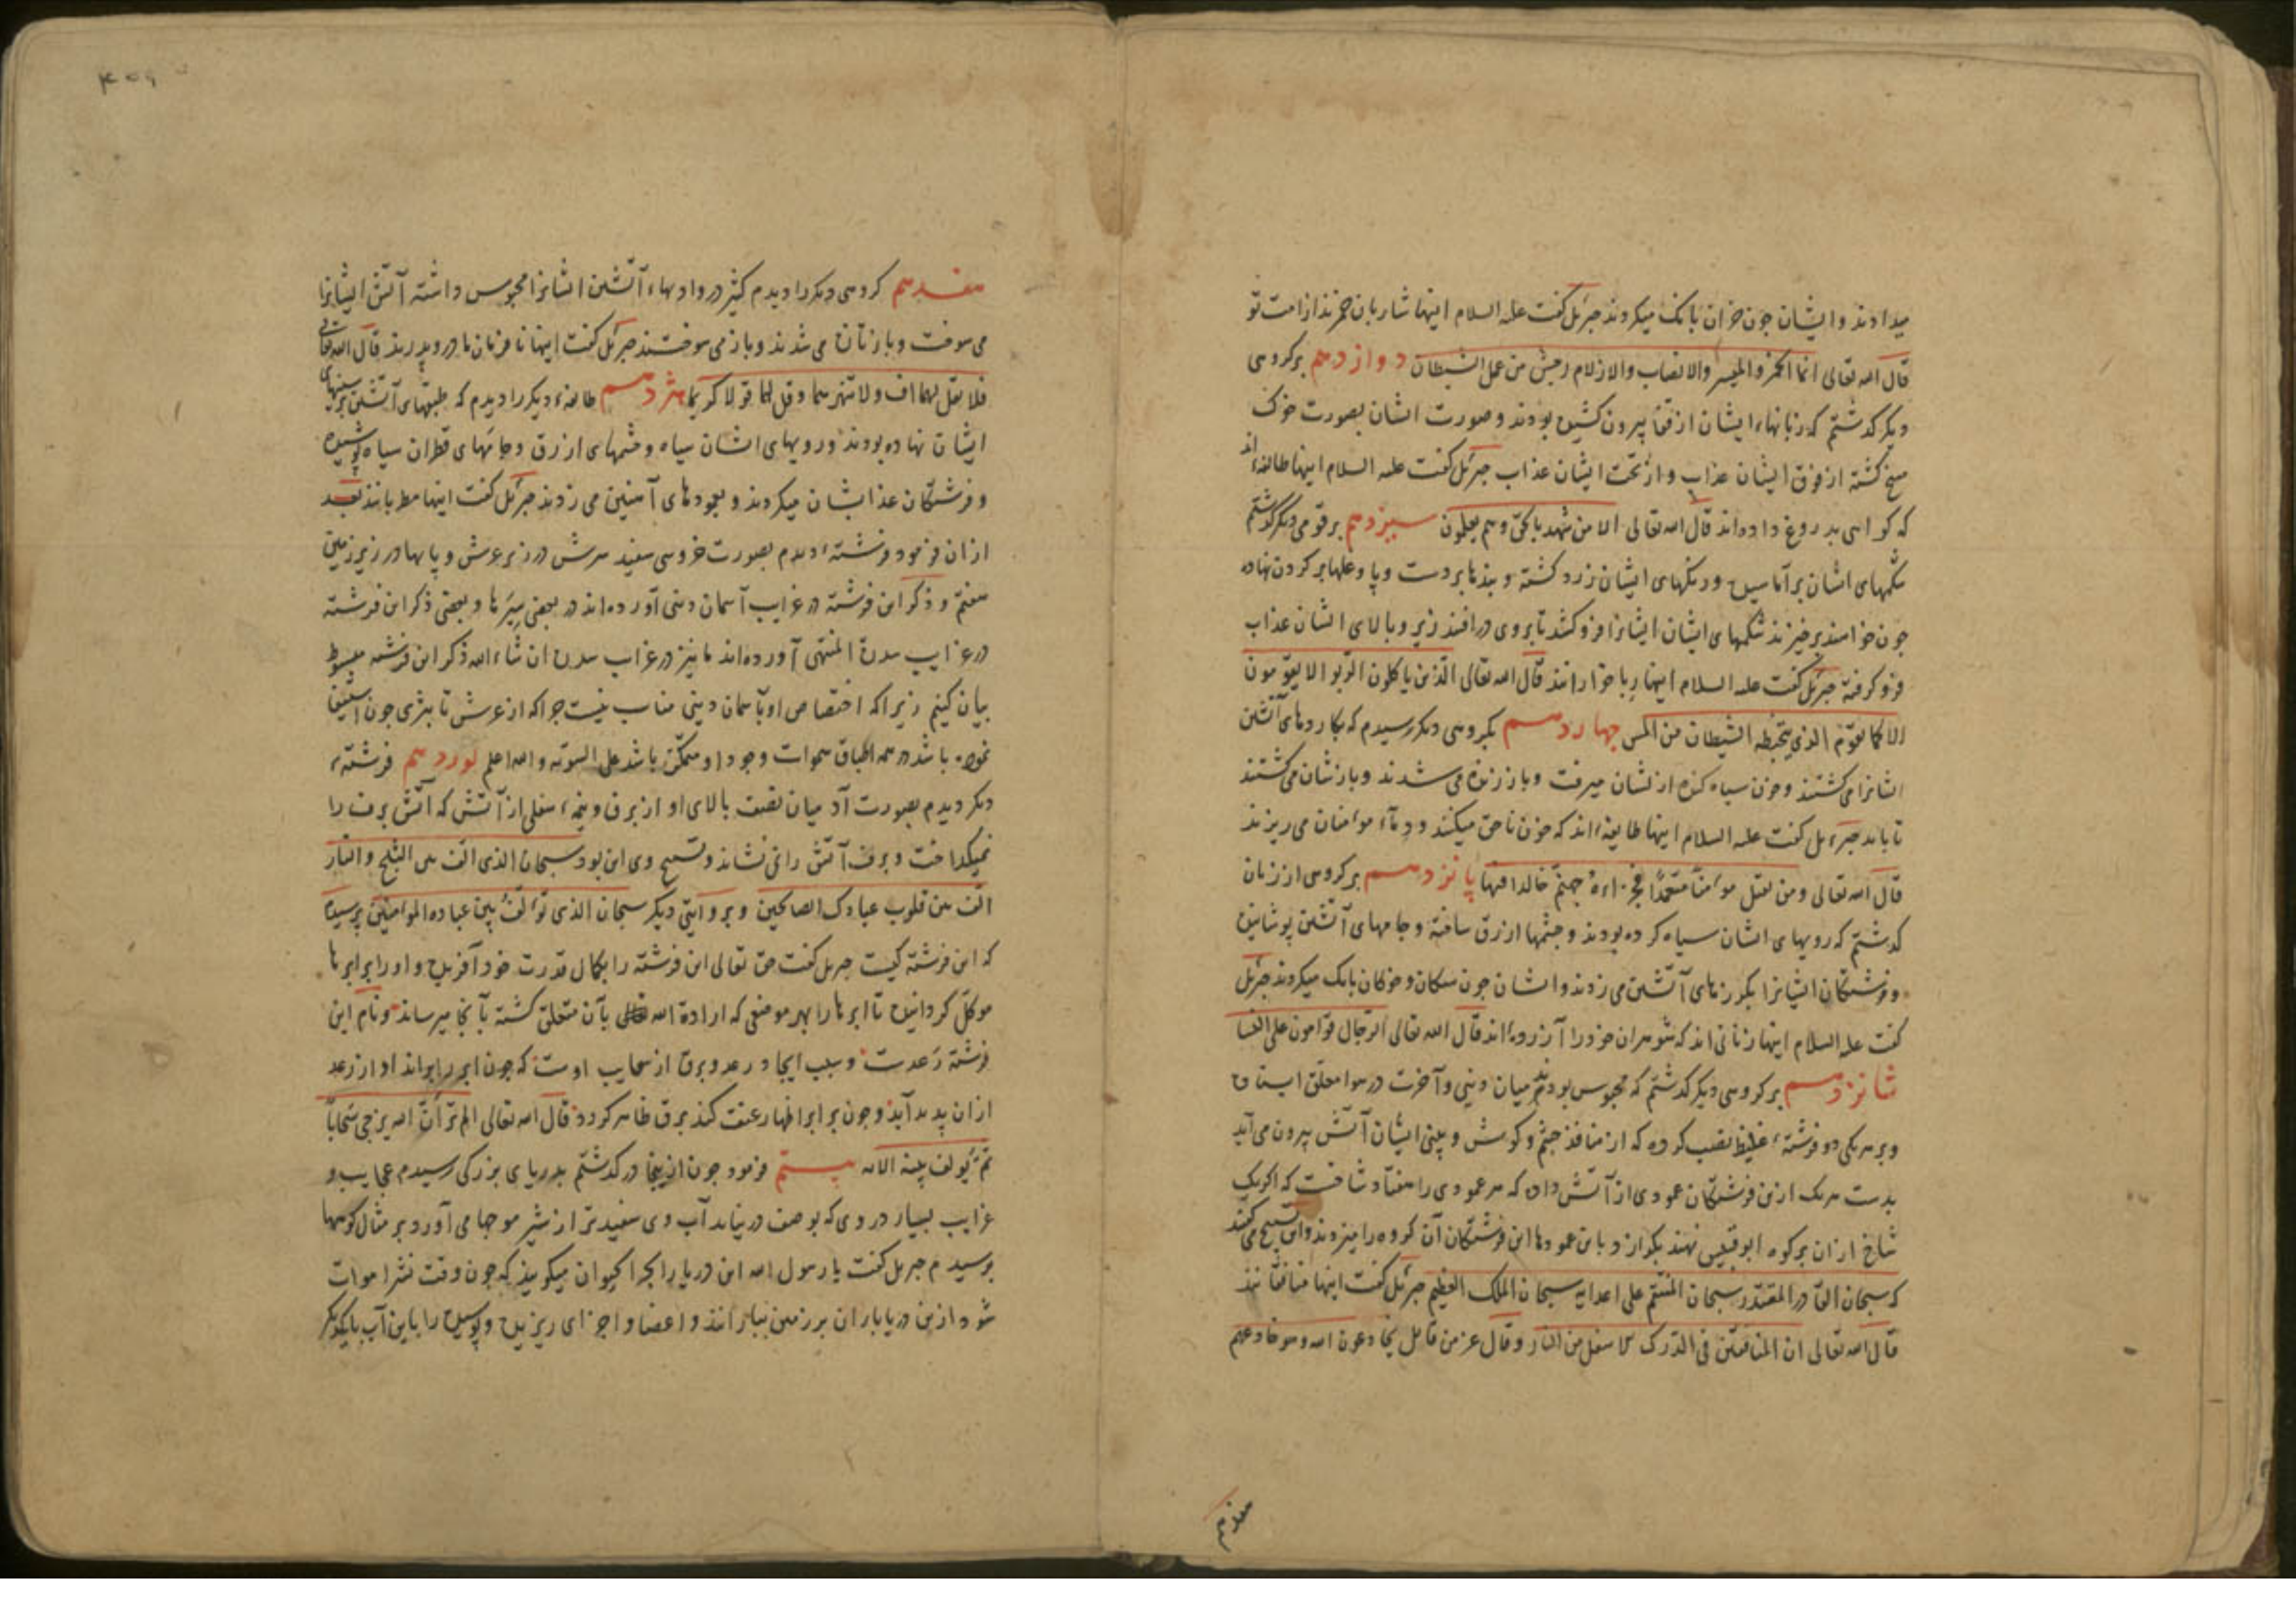 میدادند و ایشان جون خران بانک میکردند جبرئل کفت علیه السلام اینها شاربان خمرند از امت تو
قال الله تعالی انما الخمر و المیسر والانصاب والازلام رجس من عمل الشیطان دوازدهم برکروهی
دیکر کذشتم که زبانهاء ایشان از قفا بیرون کشیده بودند و صورت ایشان بصورت خوک
مسخ کشته از فوق ایشان عذاب و از تحت ایشان عذاب جبرئل کفت علیه السلام اینها طائفهٔ اند
که کواهی بدروغ داده‌اند قال الله تعالی الا من شهد بالحق وهم یعلمون سیزدهم برقومی دیکر کذشتم
شکمهای ایشان برآماسیده و رنکهای ایشان زرد کشته و بندها بر دست و پا و غلها بر کردن نهاده
جون خواهند برخیزند شکمهای ایشان ایشانرا فرو کشد تا بروی درافتند زیر و بالای ایشان عذاب
فرو کرفته جبرئل کفت علیه السلام اینها ربا خوارانند قال الله تعالی الذین یاکلون الربوا لا یقومون
الا کما یقوم الذی یتخبطه الشیطان من المس جهاردهم بکروهی دیکر رسیدم که بکاردهای آتشین
ایشانرا می کشتند و خون سیاه کنده از نشان میرفت و باز زنده می شدند و بازشان می کشتند
جبرءیل کفت علیه السلام اینها طایفهٔ اند که خون ناحق میکنند و دماء مؤمنان می ریزند
قال الله تعالی ومن یقتل مؤمنا متعمدا فجزاءه جهنم خالدا فیها پانزدهم برکروهی از زنان
کذشتم که رویهای ایشان سیاه کرده بودند و جشمها ازرق ساخته و جامهای آتشین پوشانیده
و فرشتکان ایشانرا بکرزهای آتشین می زدند و ایشان جون سکان و خوکان بانک میکردند جبرئل
کفت علیه السلام اینها زنانی اند که شوهران خود را آزرده‌اند قال الله تعالی الرجال قوامون علی النسا
شانزدهم برکروهی دیکر کذشتم که محبوس بودند میان دنیی و آخرت در هوا معلق ایستاده
و بر هر یکی دو فرشتهٔ غلیظ نصب کرده که از منافذ جشم و کوش و بینی ایشان آتش بیرون می آید
بدست هر یک ازین فرشتکان عمودی از آتش داده که هر عمودی را هفتاد شاخست که اکر یک
شاخ از آن بر کوه ابوقبیس نهند بکدازد و باین عمودها این فرشتکان آن کروه را میزدند و این تسبیح می کفتند
که سبحان القادر المقتدر سبحان المنتقم علی اعدایه سبحان الملک العظیم جبرئل کفت اینها منافقانند
قال الله تعالی ان المنافقین فی الدرک الاسفل من النار وقال عز من قائل یخادعون الله وهو خادعهم
هفدهم
۴۵۹
هفدهم کروهی دیکر را دیدم کثیر در وادیهاء آتشین ایشانرا محبوس داشته آتش ایشانرا
می سوخت و باز تازه می شدند و باز می سوختند جبرئل کفت اینها نافرمان مادر و پدرند قال الله تعالی
فلا تقل لهما اف ولا تنهرهما وقل لهما قولا کریما هژدهم طائفهٔ دیکر را دیدم که طبقهای آتشین بر سینهای
ایشان نهاده بودند و رویهای ایشان سیاه و جشمهای ازرق و جامهای قطران سیاه پوشیده
و فرشتکان عذابشان میکردند و بعمودهای آهنین می زدند جبرئل کفت اینها مطربانند بعد
ازان فرمود فرشتهٔ دیدم بصورت خروسی سفید سرش در زیر عرش و پایها در زیر زمین
هفتم و ذکر این فرشته در غرایب آسمان دنیی آورده‌اند در بعضی سیرها و بعضی ذکر این فرشته
در غرایب سدرة المنتهی آورده‌اند ما نیز در غرایب سدره ان شاء الله ذکر این فرشته مبسوط
بیان کنیم زیرا که اختصاص او بآسمان دنیی مناسب نیست جرا که از عرش تا بثری جون استیفا
نموده باشد در همه اطباق سموات وجود او ممکن باشد علی السویه والله اعلم نوزدهم فرشتهٔ
دیکر دیدم بصورت آدمیان نصف بالای او از برف و نیمهٔ سفلی از آتش که آتش برف را
نمیکداخت و برف آتش را نمی نشاند و تسبیح وی این بود سبحان الذی الف بین الثلج والنار
الف بین قلوب عبادک الصالحین و بروایتی دیکر سبحان الذی تؤلف بین عباده المؤمنین پرسیدم
که این فرشته کیست جبریل کفت حق تعالی این فرشته را بکمال قدرت خود آفریده و او را بر ابرها
موکل کردانیده تا ابرها را بهر موضعی که ارادة الله تعالی بآن متعلق کشته بآنجا میرساند و نام این
فرشته رعدست و سبب ایجاد رعد و برق از سحایب اوست که جون ابر را براند آواز رعد
ازان پدید آید و جون بر ابر اظهار عنف کند برق ظاهر کردد قال الله تعالی الم تر ان الله یزجی سحابا
ثم یؤلف بینه الایه بیستم فرمود جون از اینجا در کذشتم بدریای بزرکی رسیدم عجایب و
غرایب بسیار در وی که بوصف درنیاید آب وی سفیدتر از شیر موجها می آورد بر مثال کوهها
پرسیدم جبریل کفت یا رسول الله این دریا را بحر الحیوان میکویند که جون وقت نشر اموات
شود ازین دریا باران بر زمین بباراند و اعضا و اجزای ریزیده و پوسیده را باین آب با یکدیکر